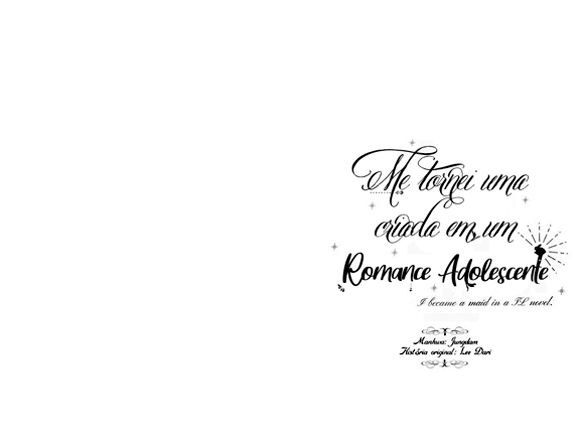 Me tornei uma
criada em um
Romance Adolescente
I became a maid in a TL novel.
Manhwa: Jungdam
História original: Lee Dari